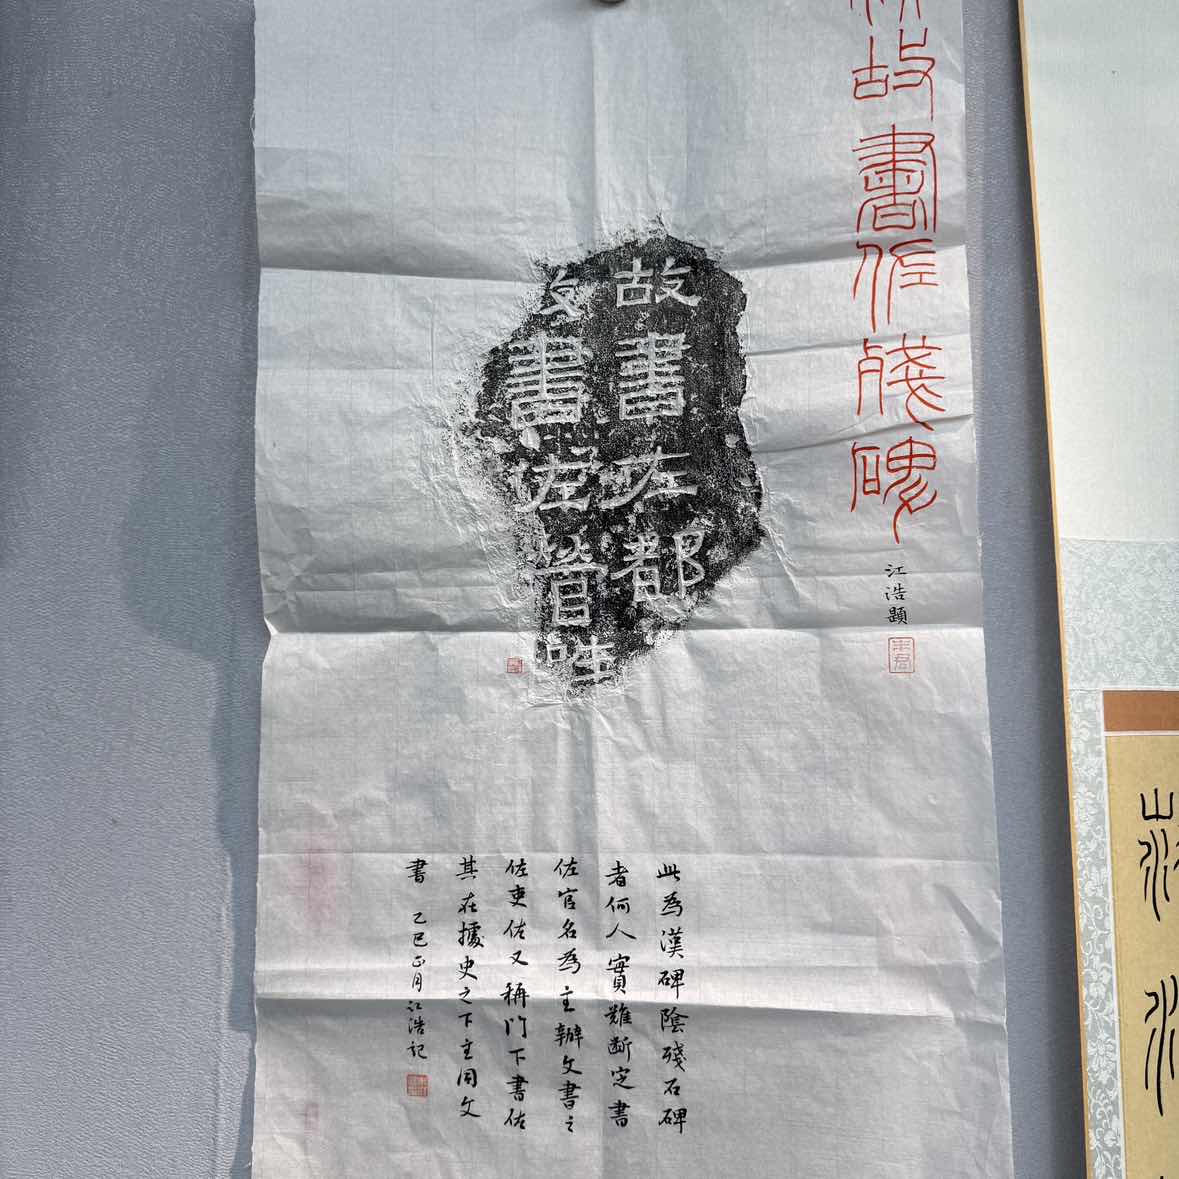 故書佐殘碑
江浩題
故書佐都
故書佐營陵
此為漢碑陰殘石碑
者何人實難斷定書
佐官名為主辦文書之
佐吏佐又稱門下書佐
其在據史之下主同文
書 乙巳正月江浩記